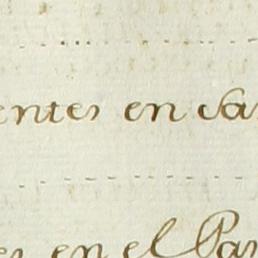 entes en Ca
es en el Par